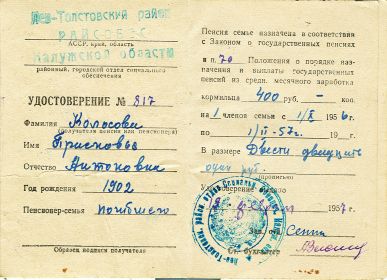 Лев-Толстовский район
РАЙСОБЕС
Калужской области
АССР, край, область
районный, городской отдел социального
обеспечения
УДОСТОВЕРЕНИЕ № 817
Фамилия Колосова
(получателя пенсии или пенсионера)
Имя
Отчество Антоновна
Год рождения 1902
Пенсионер-семья погибшего
Образец подписи получателя
Пенсия семье назначена в соответствии
с Законом о государственных пенсиях
и п. 70 Положения о порядке назна-
чения и выплаты государственных
пенсий из средн. месячного заработка
кормильца 400 руб. – коп.
на 1 членов семьи с 1/X 1956 г. по
1/II-57г. 19 г.
В размере Двести двадцать
один руб.
Удостоверение выдано
1957
Зав. отд.
Ст. бухгалтер